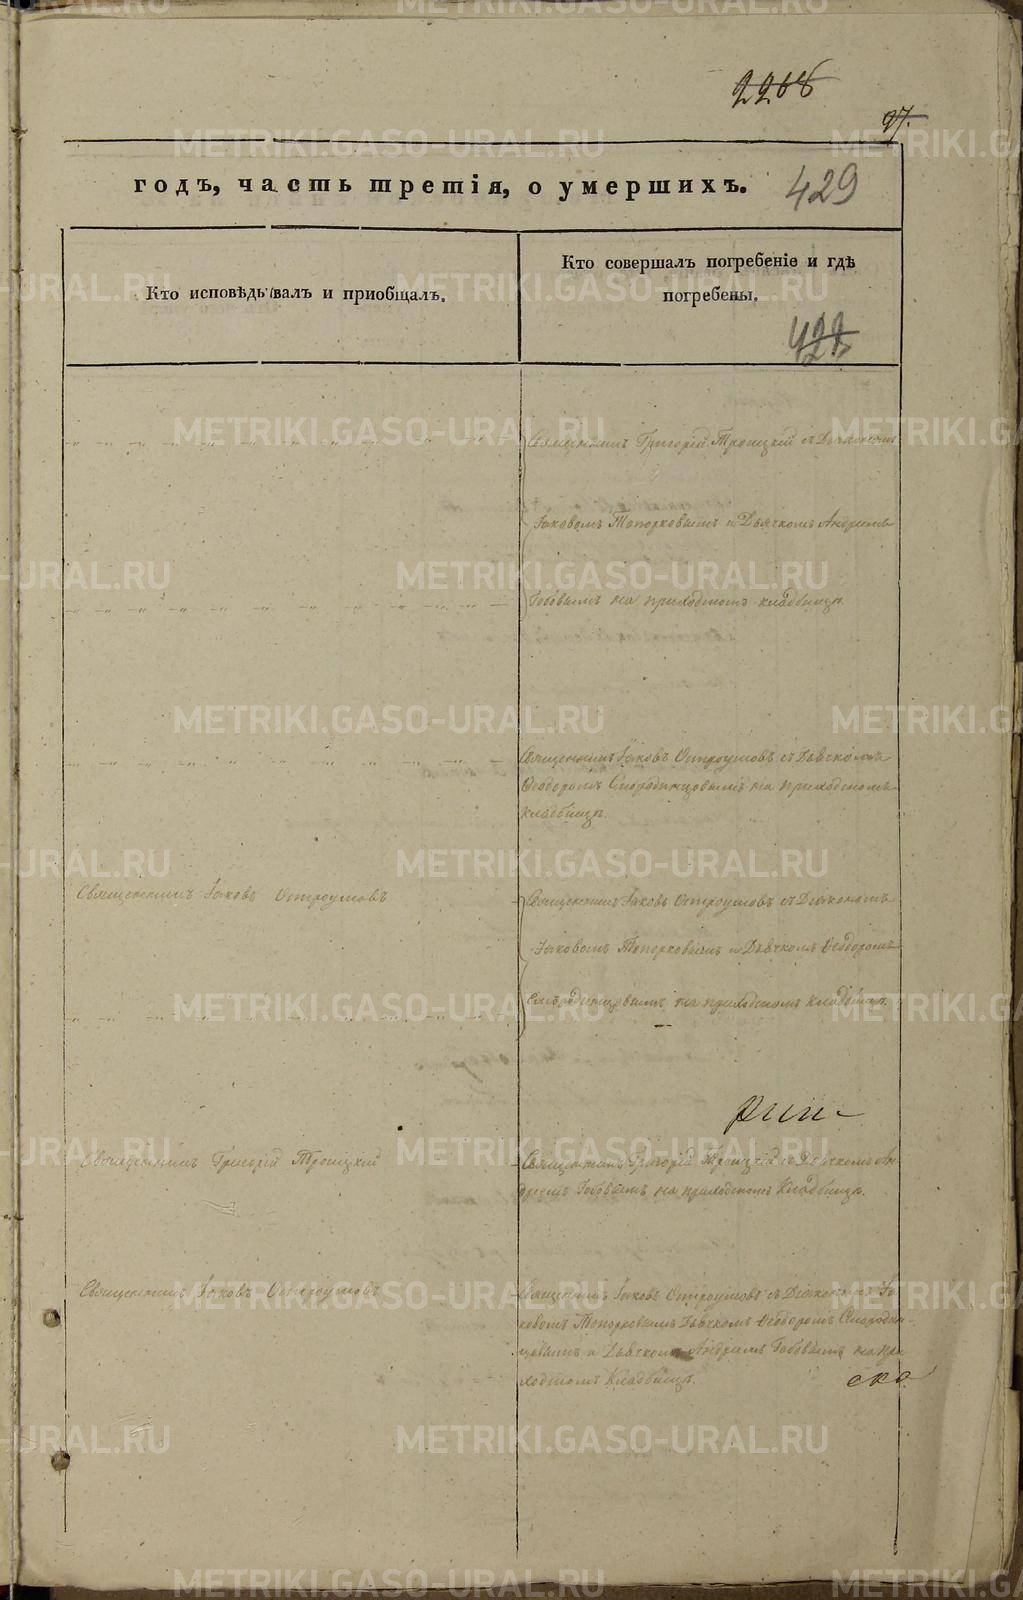 2268
97.
годъ, часть третія, о умершихъ.
429
Кто исповѣдывалъ и пріобщалъ.
Кто совершалъ погребеніе и гдѣ
погребены.
Священникъ Григорій Троицкій съ Діакономъ
Іаковомъ Топорковымъ и Дьячкомъ Андреемъ
на приходскомъ кладбищѣ.
Священникъ Іаковъ Остроумовъ съ Дьячкомъ
Ѳеодоромъ Смородинцовымъ на приходскомъ
кладбищѣ.
Священникъ Іаковъ Остроумовъ
Священникъ Іаковъ Остроумовъ съ Діакономъ
Іаковомъ Топорковымъ и Дьячкомъ Ѳеодоромъ
Смородинцовымъ на приходскомъ кладбищѣ.
Священникъ Григорій Троицкій
Священникъ Григорій Троицкій съ Дьячкомъ Ан-
дреемъ на приходскомъ Кладбищѣ.
Священникъ Іаковъ Остроумовъ
Священникъ Іаковъ Остроумовъ съ Діакономъ Іа-
ковомъ Топорковымъ Дьячкомъ Ѳеодоромъ Смородин-
цовымъ и Дьячкомъ Андреемъ на при-
ходскомъ Кладбищѣ.
METRIKI.GASO-URAL.RU